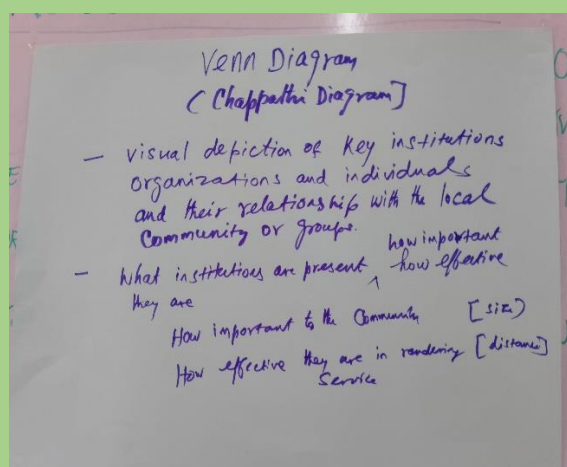 Venn Diagram
(Chappathi Diagram]
— visual depiction of key institutions
organizations and individuals
and their relationship with the local
Community or groups.
how important
- What institutions are present ^ how effective
they are
How important to the Community [size)
How effective they are in rendering [distance]
Service